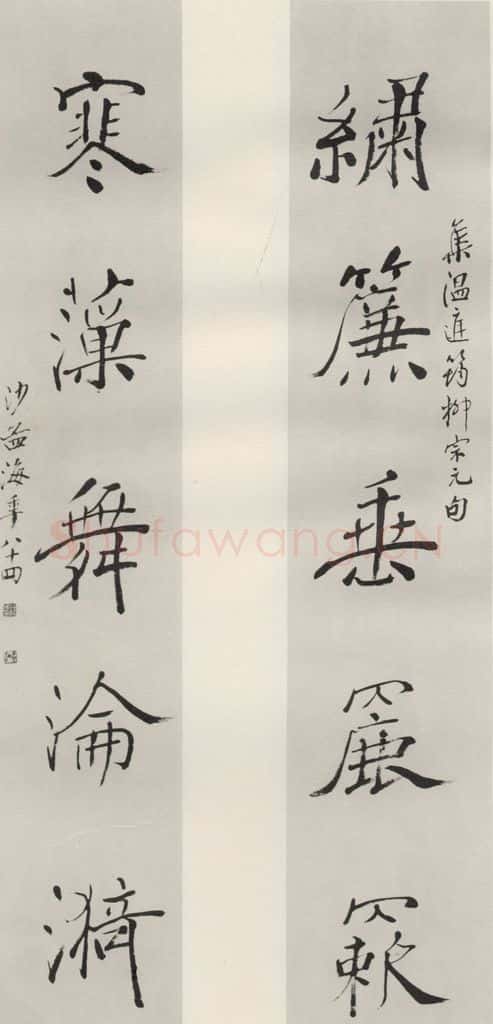 繡簾垂䍡
集溫庭筠柳宗元句
寒藻舞淪漪
沙孟海年八十四
Shufawang.CN